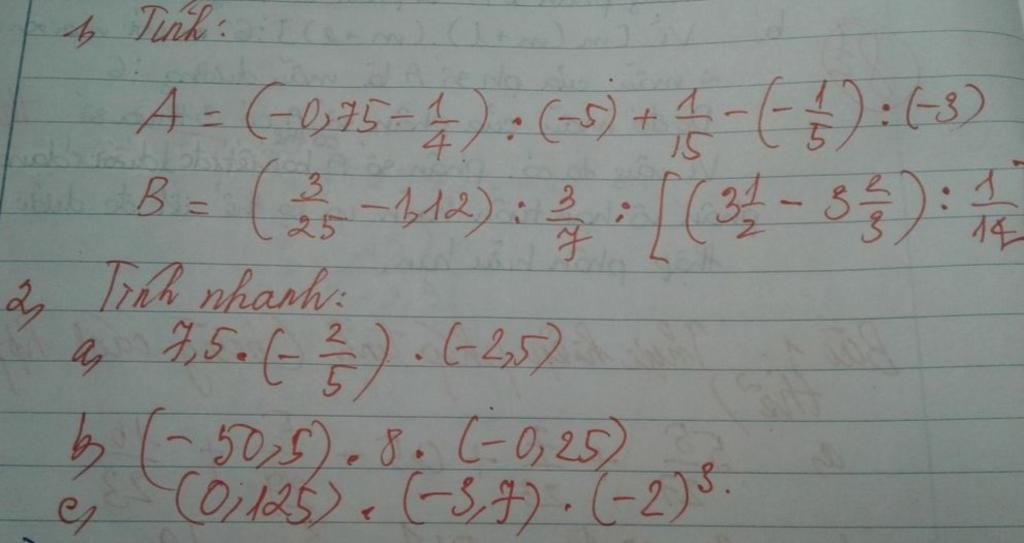 1, Tính:
A = (-0,75 - 1/4) : (-5) + 1/15 - (-1/5) : (-3)
B = (3/25 - 1,12) : 3/7 : [(3 1/2 - 3 2/3) : 1/14
2, Tính nhanh:
a, 7,5 . (-2/5) . (-2,5)
b, (-50,5) . 8 . (-0,25)
c, (0,125) . (-3,7) . (-2)³.